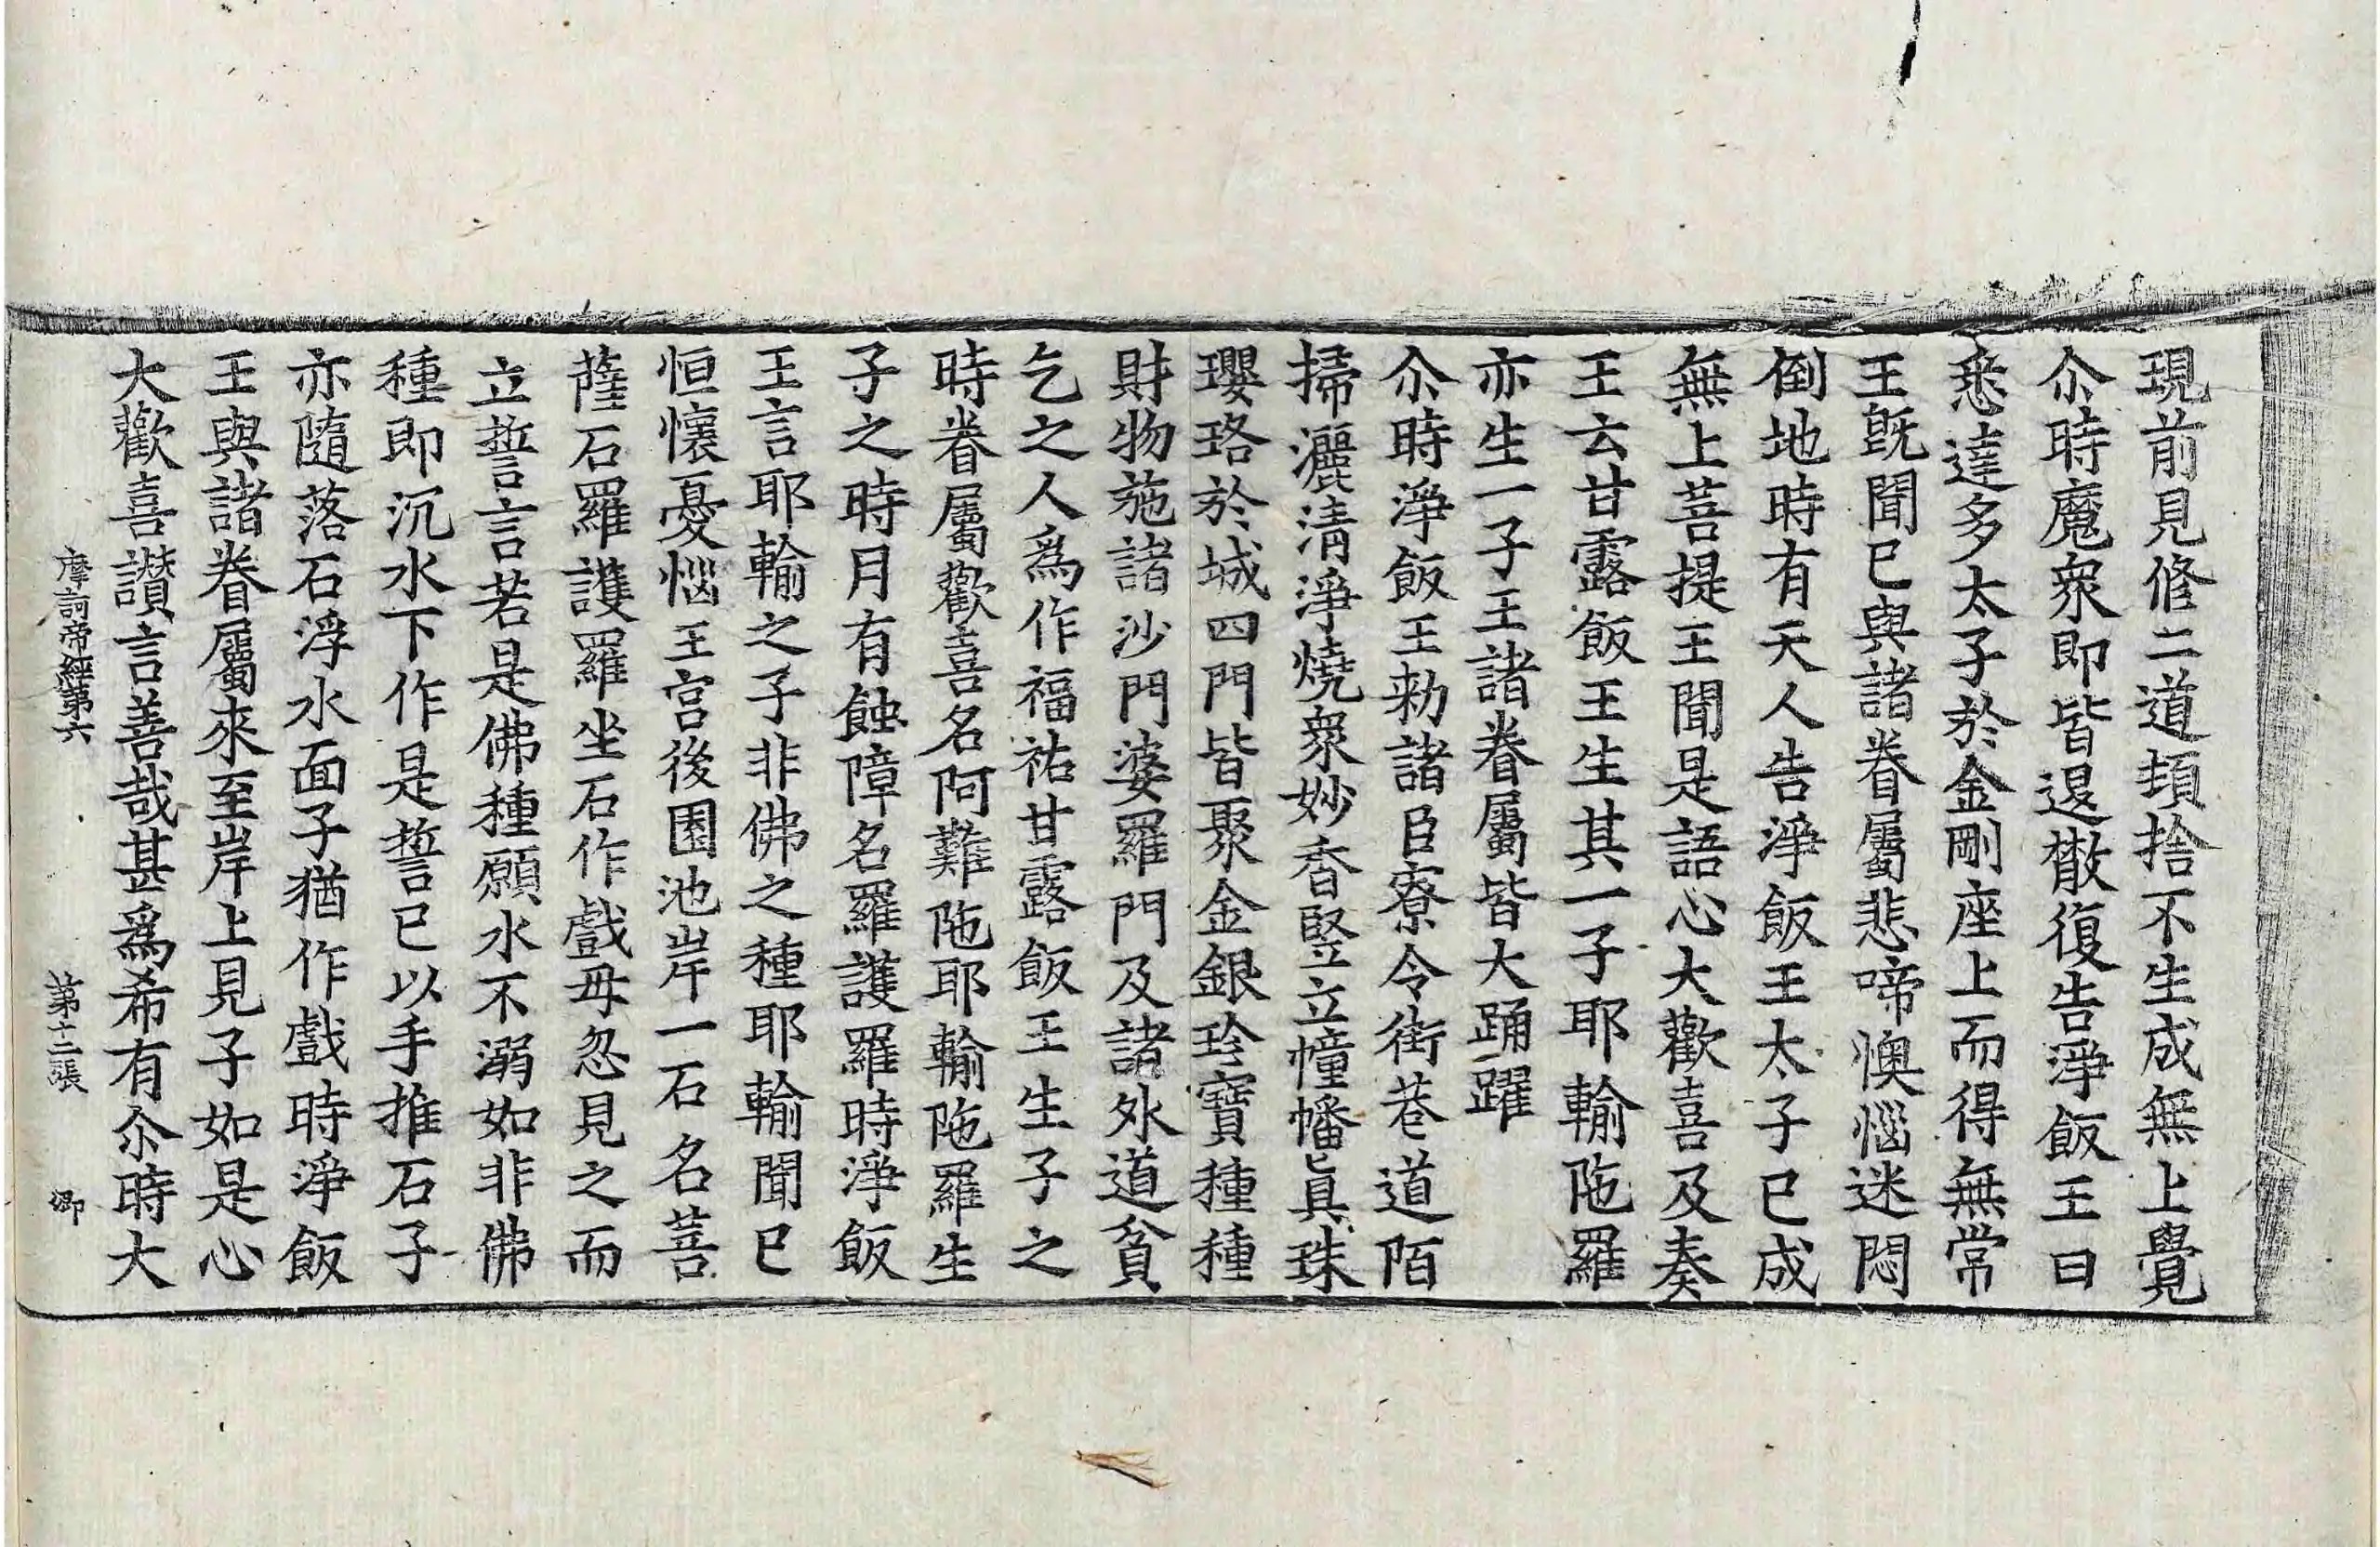 現前見修二道頓捨不生成無上覺
尒時魔衆即皆退散復告淨飯王曰
悉達多太子於金剛座上而得無常
王旣聞已與諸眷屬悲啼懊惱迷悶
倒地時有天人告淨飯王太子已成
無上菩提王聞是語心大歡喜及奏
王云甘露飯王生其一子耶輸陁羅
亦生一子王諸眷屬皆大踊躍
尒時淨飯王勑諸臣寮令街巷道陌
掃灑淸淨燒衆妙香竪立幢幡眞珠
瓔珞於城四門皆聚金銀珍寶種種
財物施諸沙門婆羅門及諸外道貧
乞之人爲作福祐甘露飯王生子之
時眷屬歡喜名阿難陁耶輸陁羅生
子之時月有蝕障名羅護羅時淨飯
王言耶輸之子非佛之種耶輸聞已
恒懷憂惱王宮後園池岸一石名菩
薩石羅護羅坐石作戲母忽見之而
立誓言若是佛種願水不溺如非佛
種即沉水下作是誓已以手推石子
亦隨落石浮水面子猶作戲時淨飯
王與諸眷屬來至岸上見子如是心
大歡喜讃言善哉甚爲希有尒時大
摩訶帝經第六 第十二張 卿